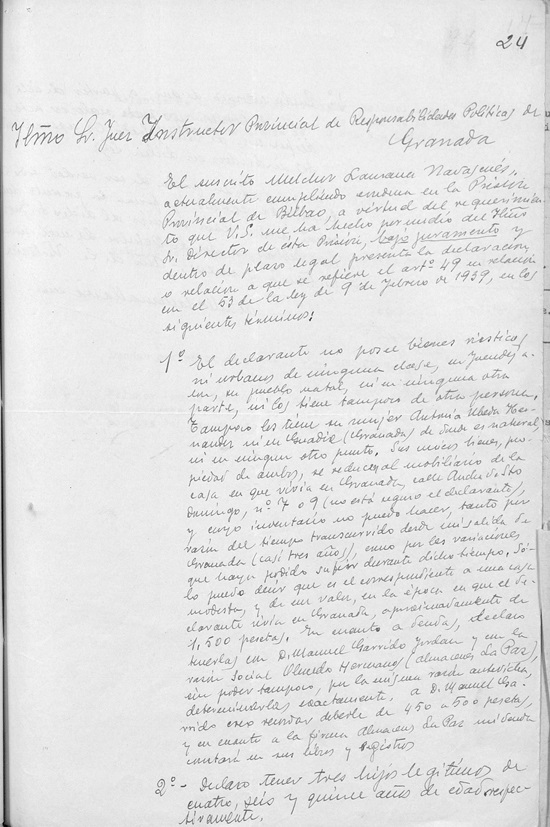 24
Iltmo Sr. Juez Instructor Provincial de Responsabilidades Políticas de
Granada
El suscrito Melchor
actualmente cumpliendo condena en la Prisión
Provincial de Bilbao, a virtud del requerimien
to que V.S. me ha hecho por medio del Iltmo
Sr. Director de esta Prisión, bajo juramento y
dentro de plazo legal presenta la declaración
o relación a que se refiere el artº 49 en relación
con el 53 de la ley de 9 de Febrero de 1939, en los
siguientes términos:
1º El declarante no posee bienes rústicos
ni urbanos de ninguna clase, en
su pueblo natal, ni en ninguna otra
parte, ni los tiene tampoco de otra persona.
Tampoco los tiene su mujer Antonia Ubeda Her-
nandez ni en Guadix (Granada) de donde es natural
ni en ningun otro punto. Sus unicos bienes, pro-
piedad de ambos, se reducen al mobiliario de la
casa en que vivia en Granada, calle Ancha de Sto
Domingo, nº 7 o 9 (no está seguro el declarante),
y cuyo inventario no puedo hacer, tanto por
razón del tiempo transcurrido desde mi salida de
Granada (casi tres años), como por las variaciones
que haya podido sufrir durante dicho tiempo. Só-
lo puedo decir que es el correspondiente a una casa
modesta, y de un valor, en la época en que el de-
clarante vivia en Granada, aproximadamente de
1.500 pesetas. En cuanto a deudas, declaro
tenerlas con D. Manuel Garrido y con la
razón social Olmedo Hermanos (almacenes La Paz),
sin poder tampoco, por la misma razón antedicha,
determinarlas exactamente. a D. Manuel Ga-
rrido creo recordar deberle de 450 a 500 pesetas,
y en cuanto a la firma almacenes La Paz mi deuda
constará en sus libros y registros
2º - Declaro tener tres hijos legítimos de
cuatro, seis y quince años de edad respec-
tivamente.